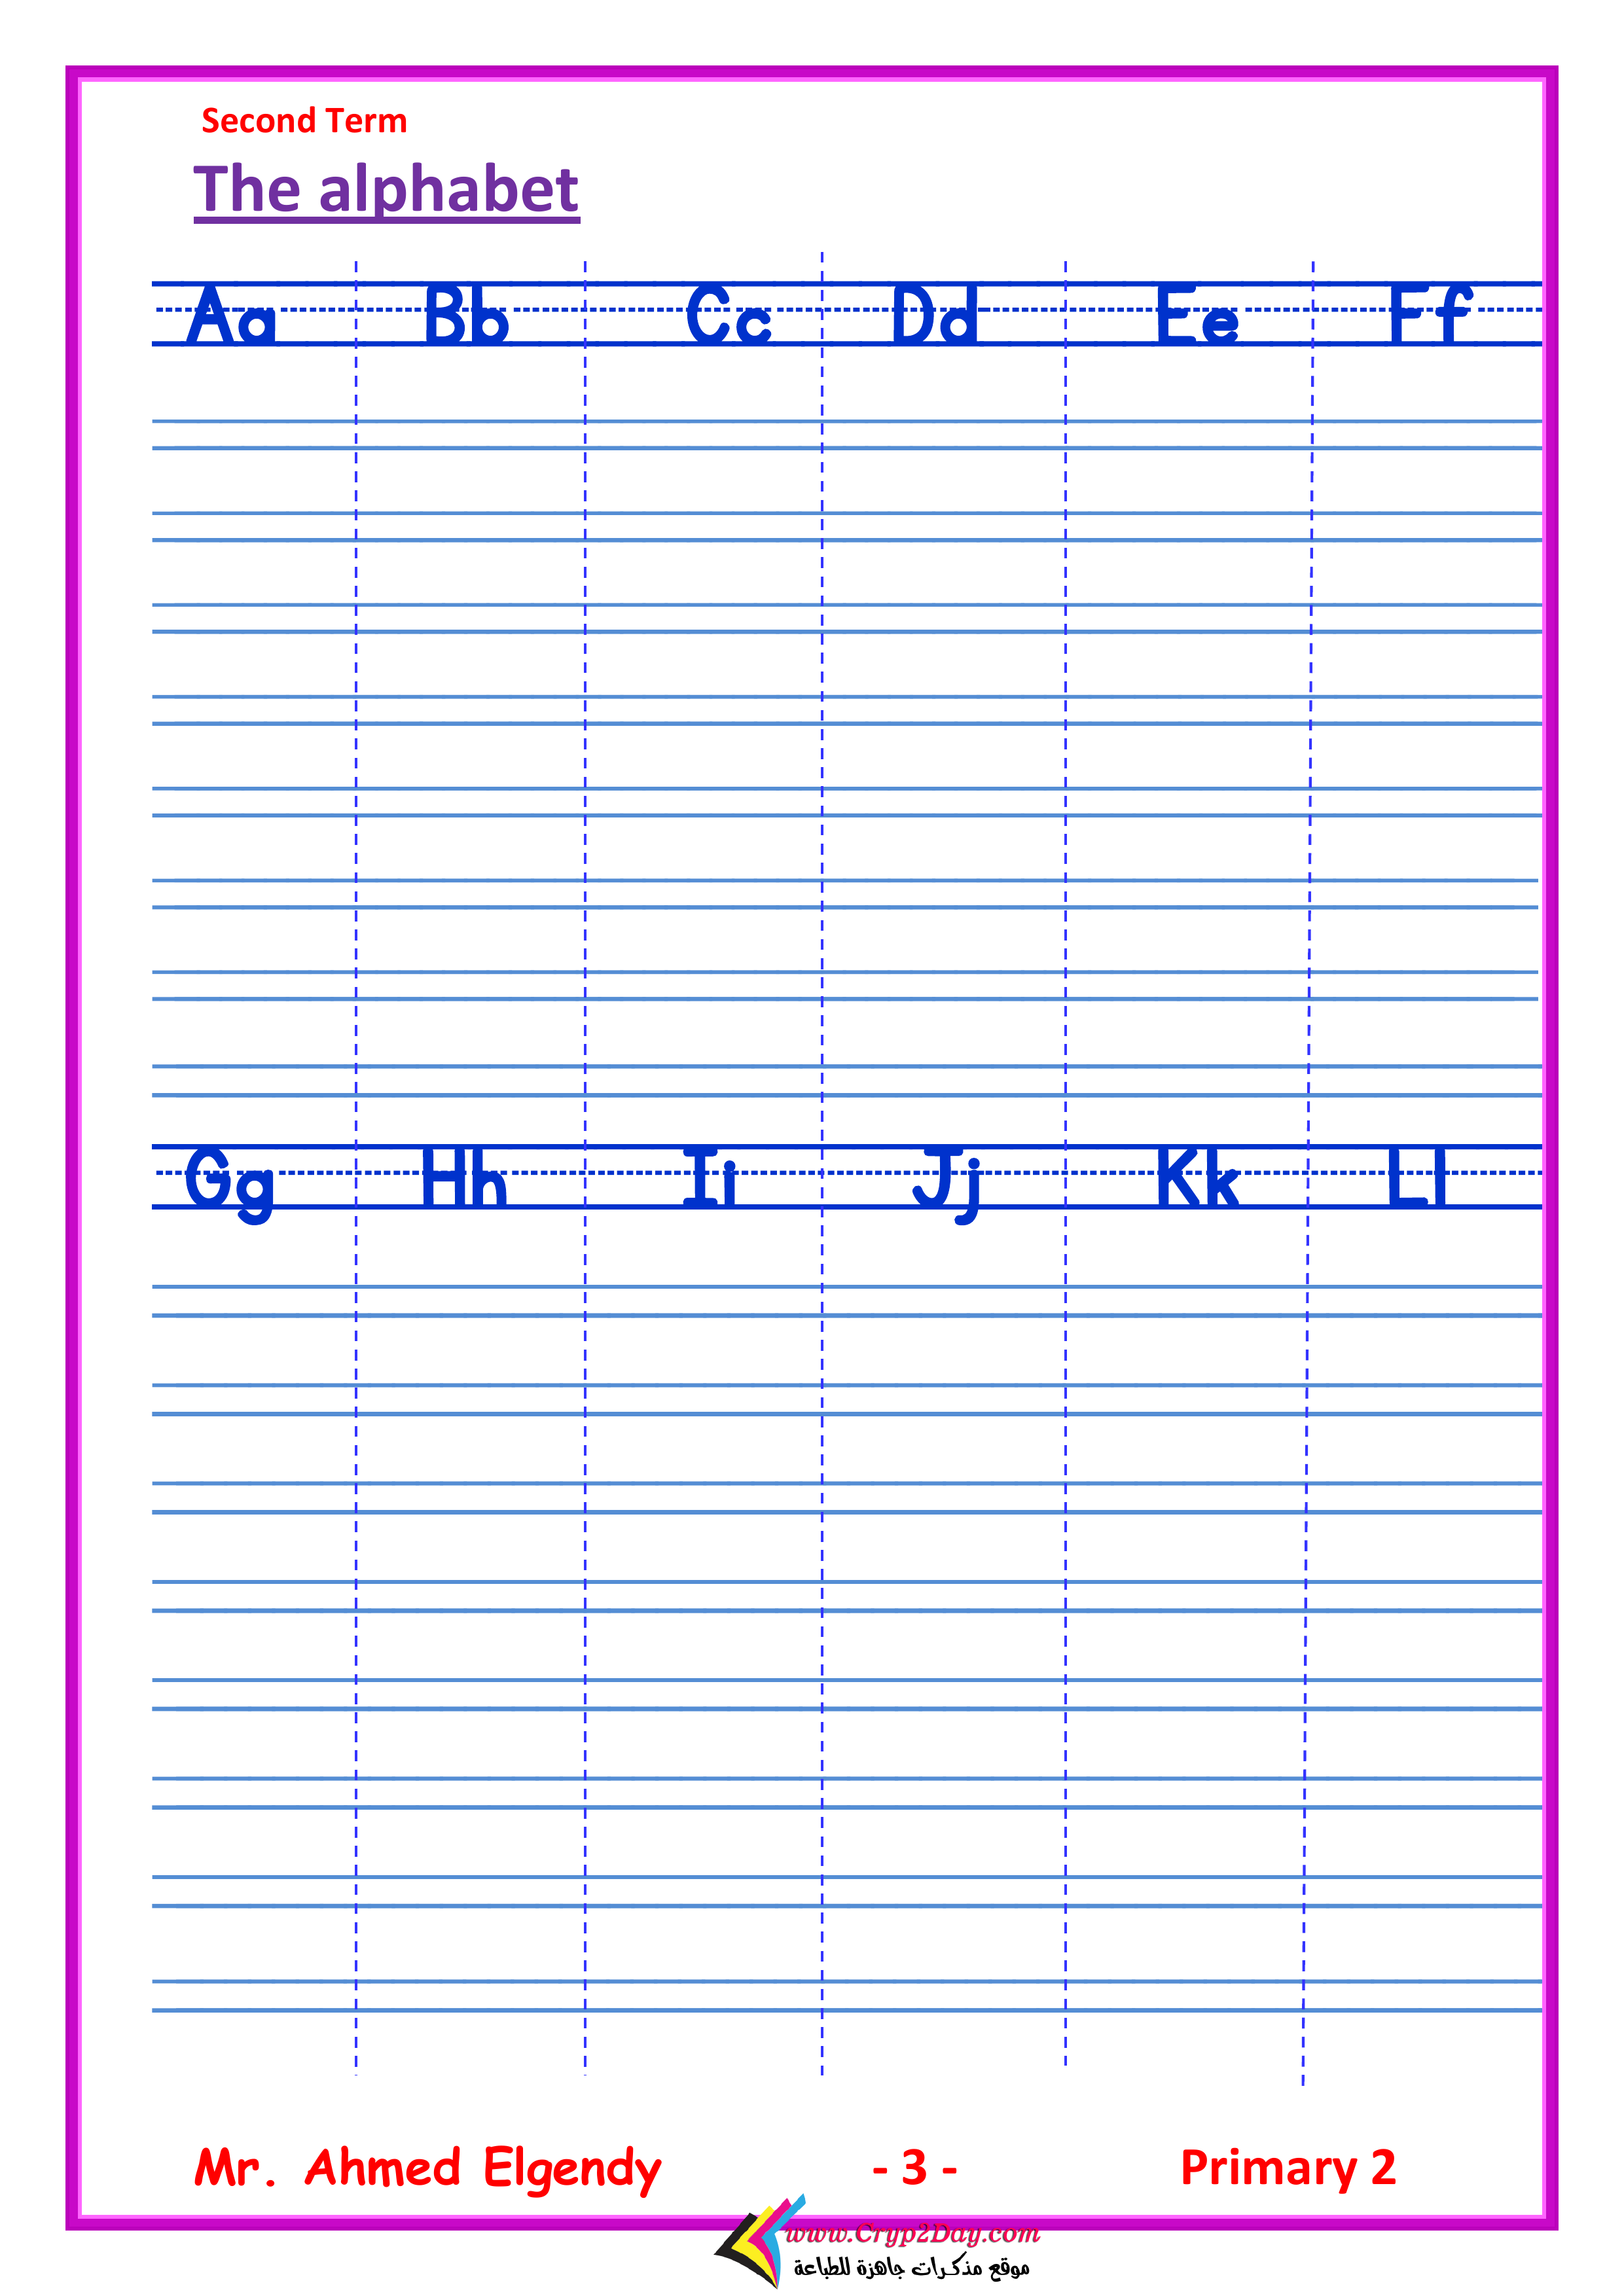 Second Term
The alphabet
Aa Bb Cc Dd Ee Ff
Gg Hh Ii Jj Kk Ll
Mr. Ahmed Elgendy - 3 - Primary 2
www.Cryp2Day.com
موقع مذكرات جاهزة للطباعة